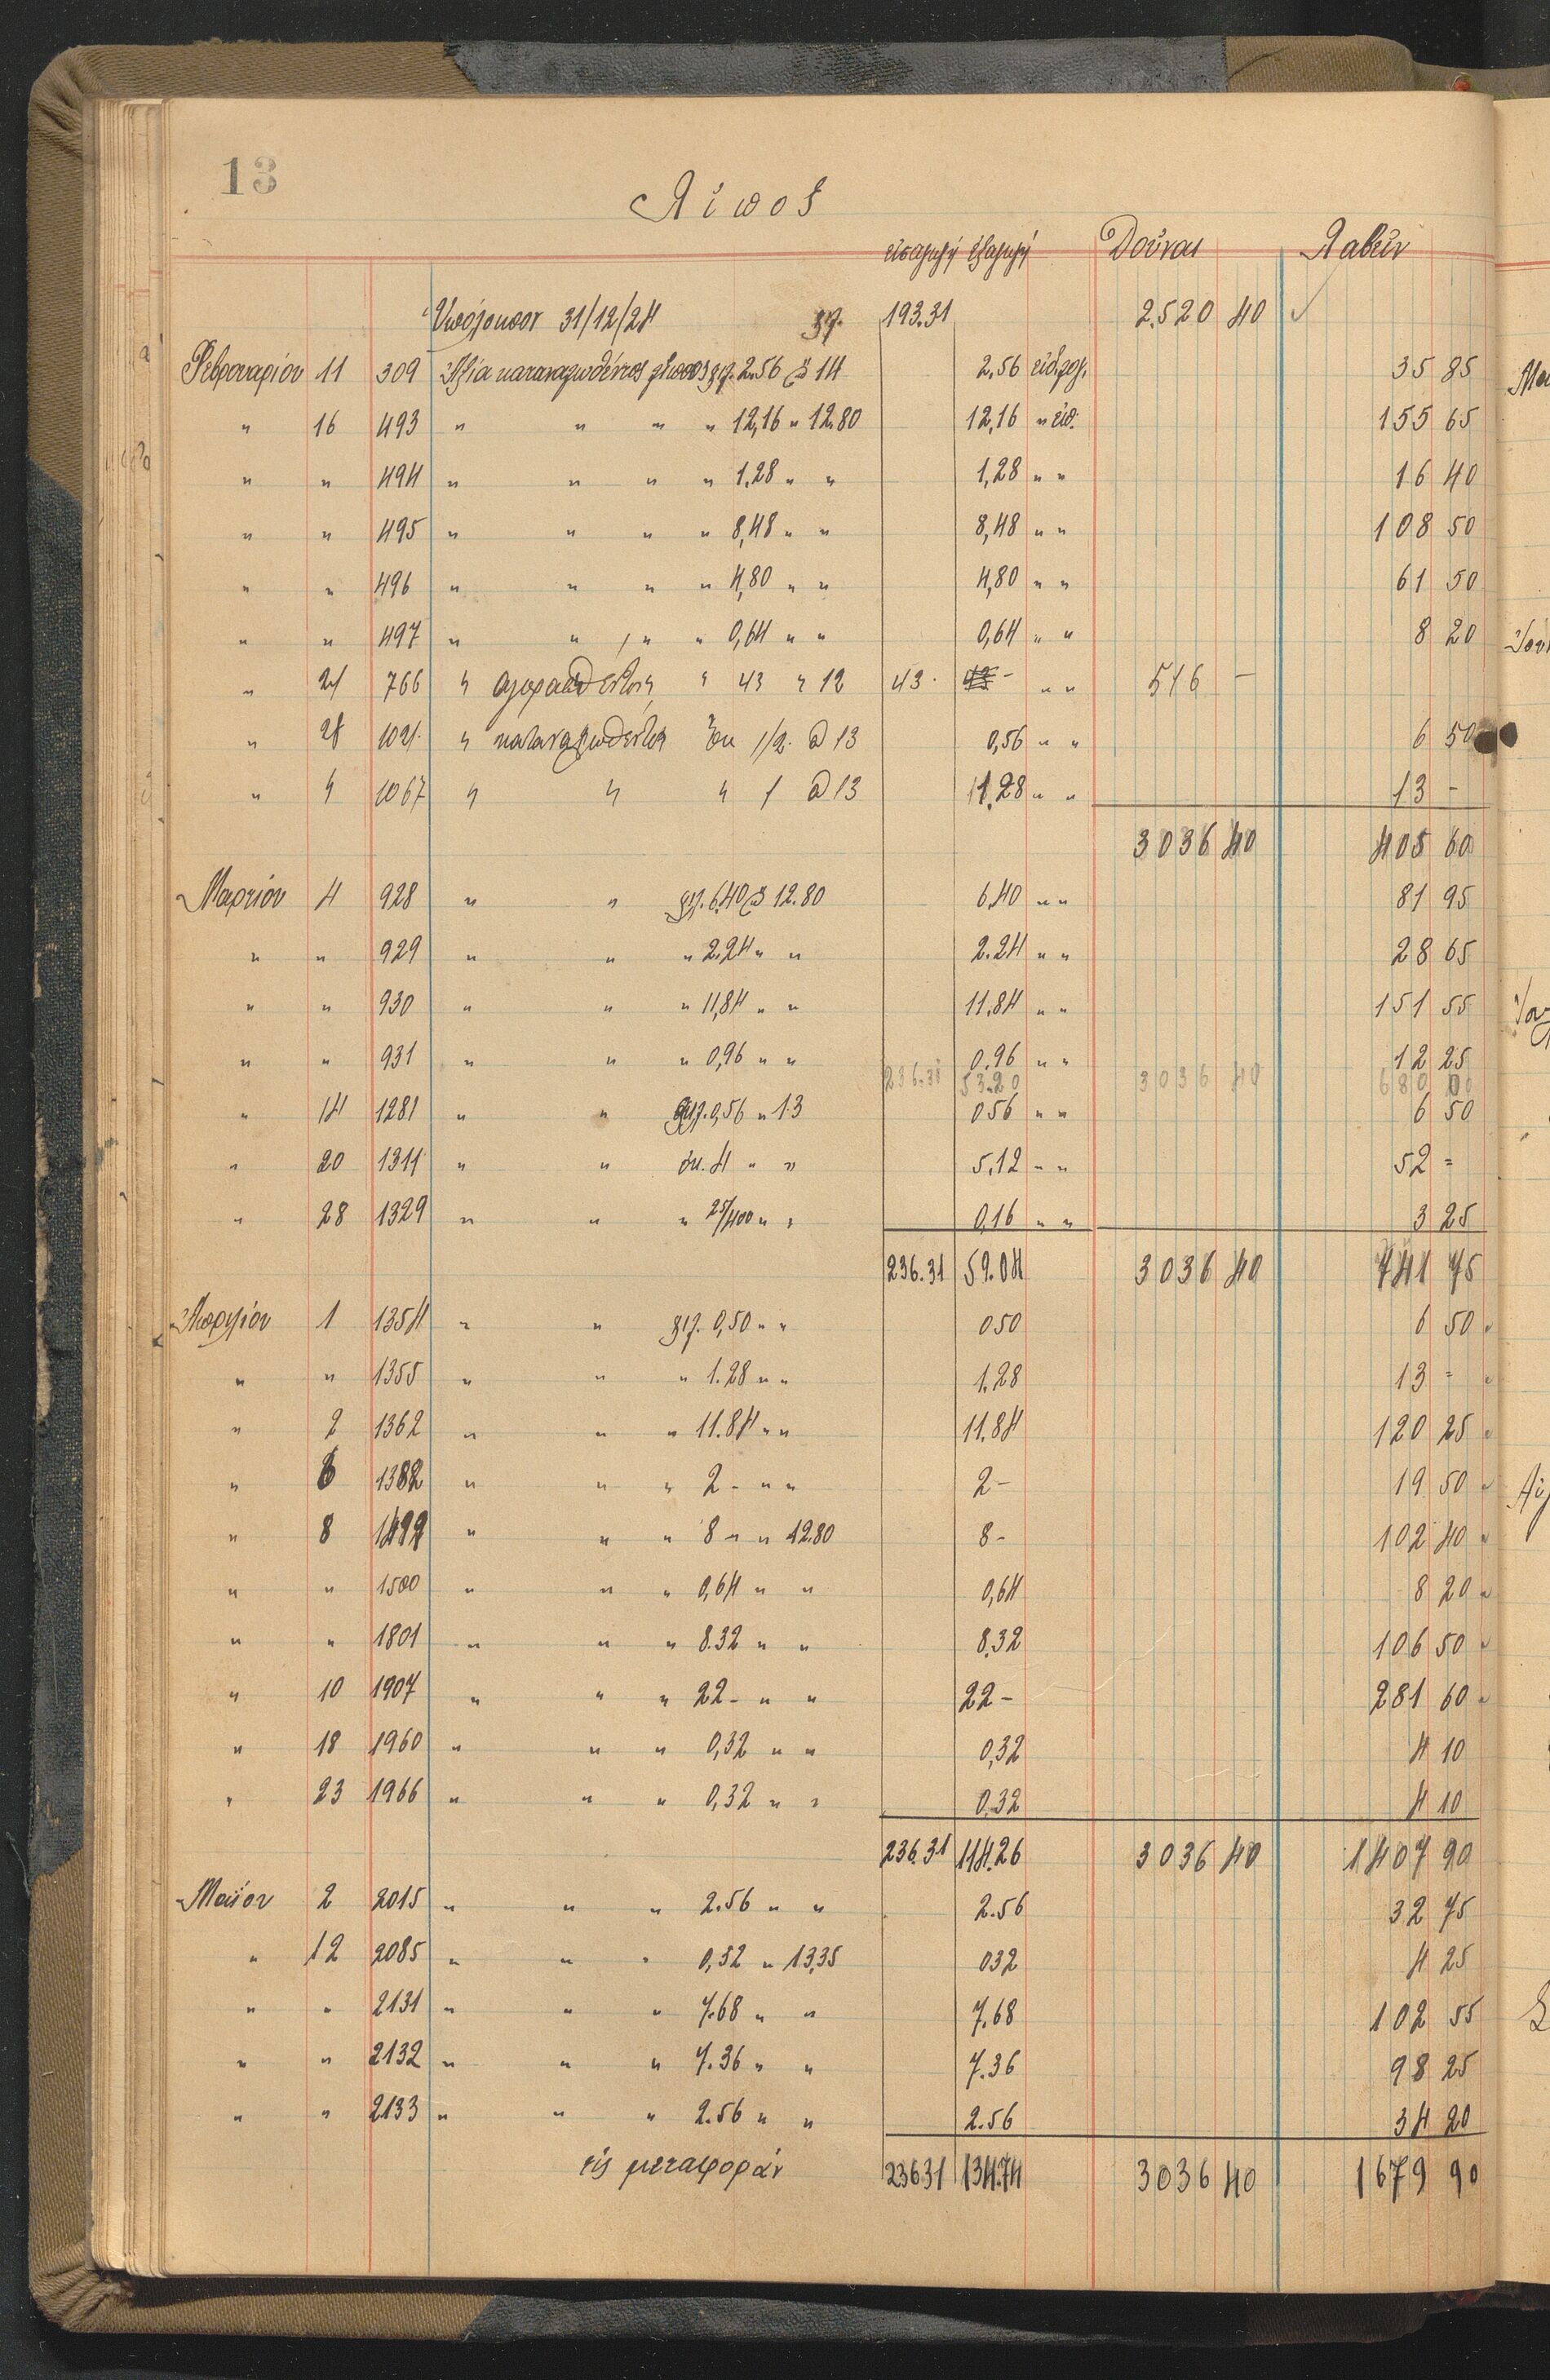 13
Λίπος
εἰσαγωγή ἐξαγωγή Δοῦναι Λαβεῖν
Ὑπόλοιπον 31/12/24 χιλ. 193.31 2.520 40 ✓
Φεβρουαρίου 11 309 Ἀξία καταναλωθέντος λίπους χιλ. 2.56 @ 14 2.56 35 85
" 16 493 " " " " 12,16 " 12.80 12,16 " 155 65
" " 494 " " " " 1.28 " " 1,28 " " 16 40
" " 495 " " " " 8,48 " " 8,48 " " 108 50
" " 496 " " " " 4,80 " " 4,80 " " 61 50
" " 497 " " " " 0,64 " " 0,64 " " 8 20
" 21 766 " " 43 " 12 43 . - " " 516 -
" 28 1021 " ὀκ 1/2 @ 13 0,56 " " 6 50
" " 1067 " " " 1 @ 13 1,28 " " 13 -
3036 40 405 60
Μαρτίου 4 928 " " χιλ. 6,40 @ 12.80 6.40 " " 81 95
" " 929 " " " 2.24 " " 2.24 " " 28 65
" " 930 " " " 11,84 " " 11.84 " " 151 55
" " 931 " " " 0,96 " " 0.96 " " 12 25
236.31 53.20 3036 40 680 00
" 14 1281 " " χιλ. 0,56 " 13 056 " " 6 50
" 20 1311 " " ὀκ. 4 " " 5,12 " " 52 =
" 28 1329 " " " 25/400 " " 0,16 " " 3 25
236.31 59.04 3036 40 741 75
Ἀπριλίου 1 1354 " " χιλ. 0,50 " " 050 6 50
" " 1355 " " " 1.28 " " 1.28 13 =
" 2 1362 " " " 11.84 " " 11.84 120 25
" 6 1382 " " " 2 - " " 2 - 19 50
" 8 1499 " " " 8 " " 12.80 8 - 102 40
" " 1500 " " " 0,64 " " 0,64 8 20
" " 1801 " " " 8.32 " " 8.32 106 50
" 10 1907 " " " 22 - " " 22 - 281 60
" 18 1960 " " " 0,32 " " 0,32 4 10
" 23 1966 " " " 0,32 " " 0.32 4 10
236.31 114.26 3036 40 1407 90
Μαΐου 2 2015 " " " 2.56 " " 2.56 32 75
" 12 2085 " " " 0,32 " 13,35 032 4 25
" " 2131 " " " 7.68 " " 7.68 102 55
" " 2132 " " " 7.36 " " 7.36 98 25
" " 2133 " " " 2.56 " " 2.56 34 20
εἰς μεταφοράν 23631 134.74 3036 40 1679 90